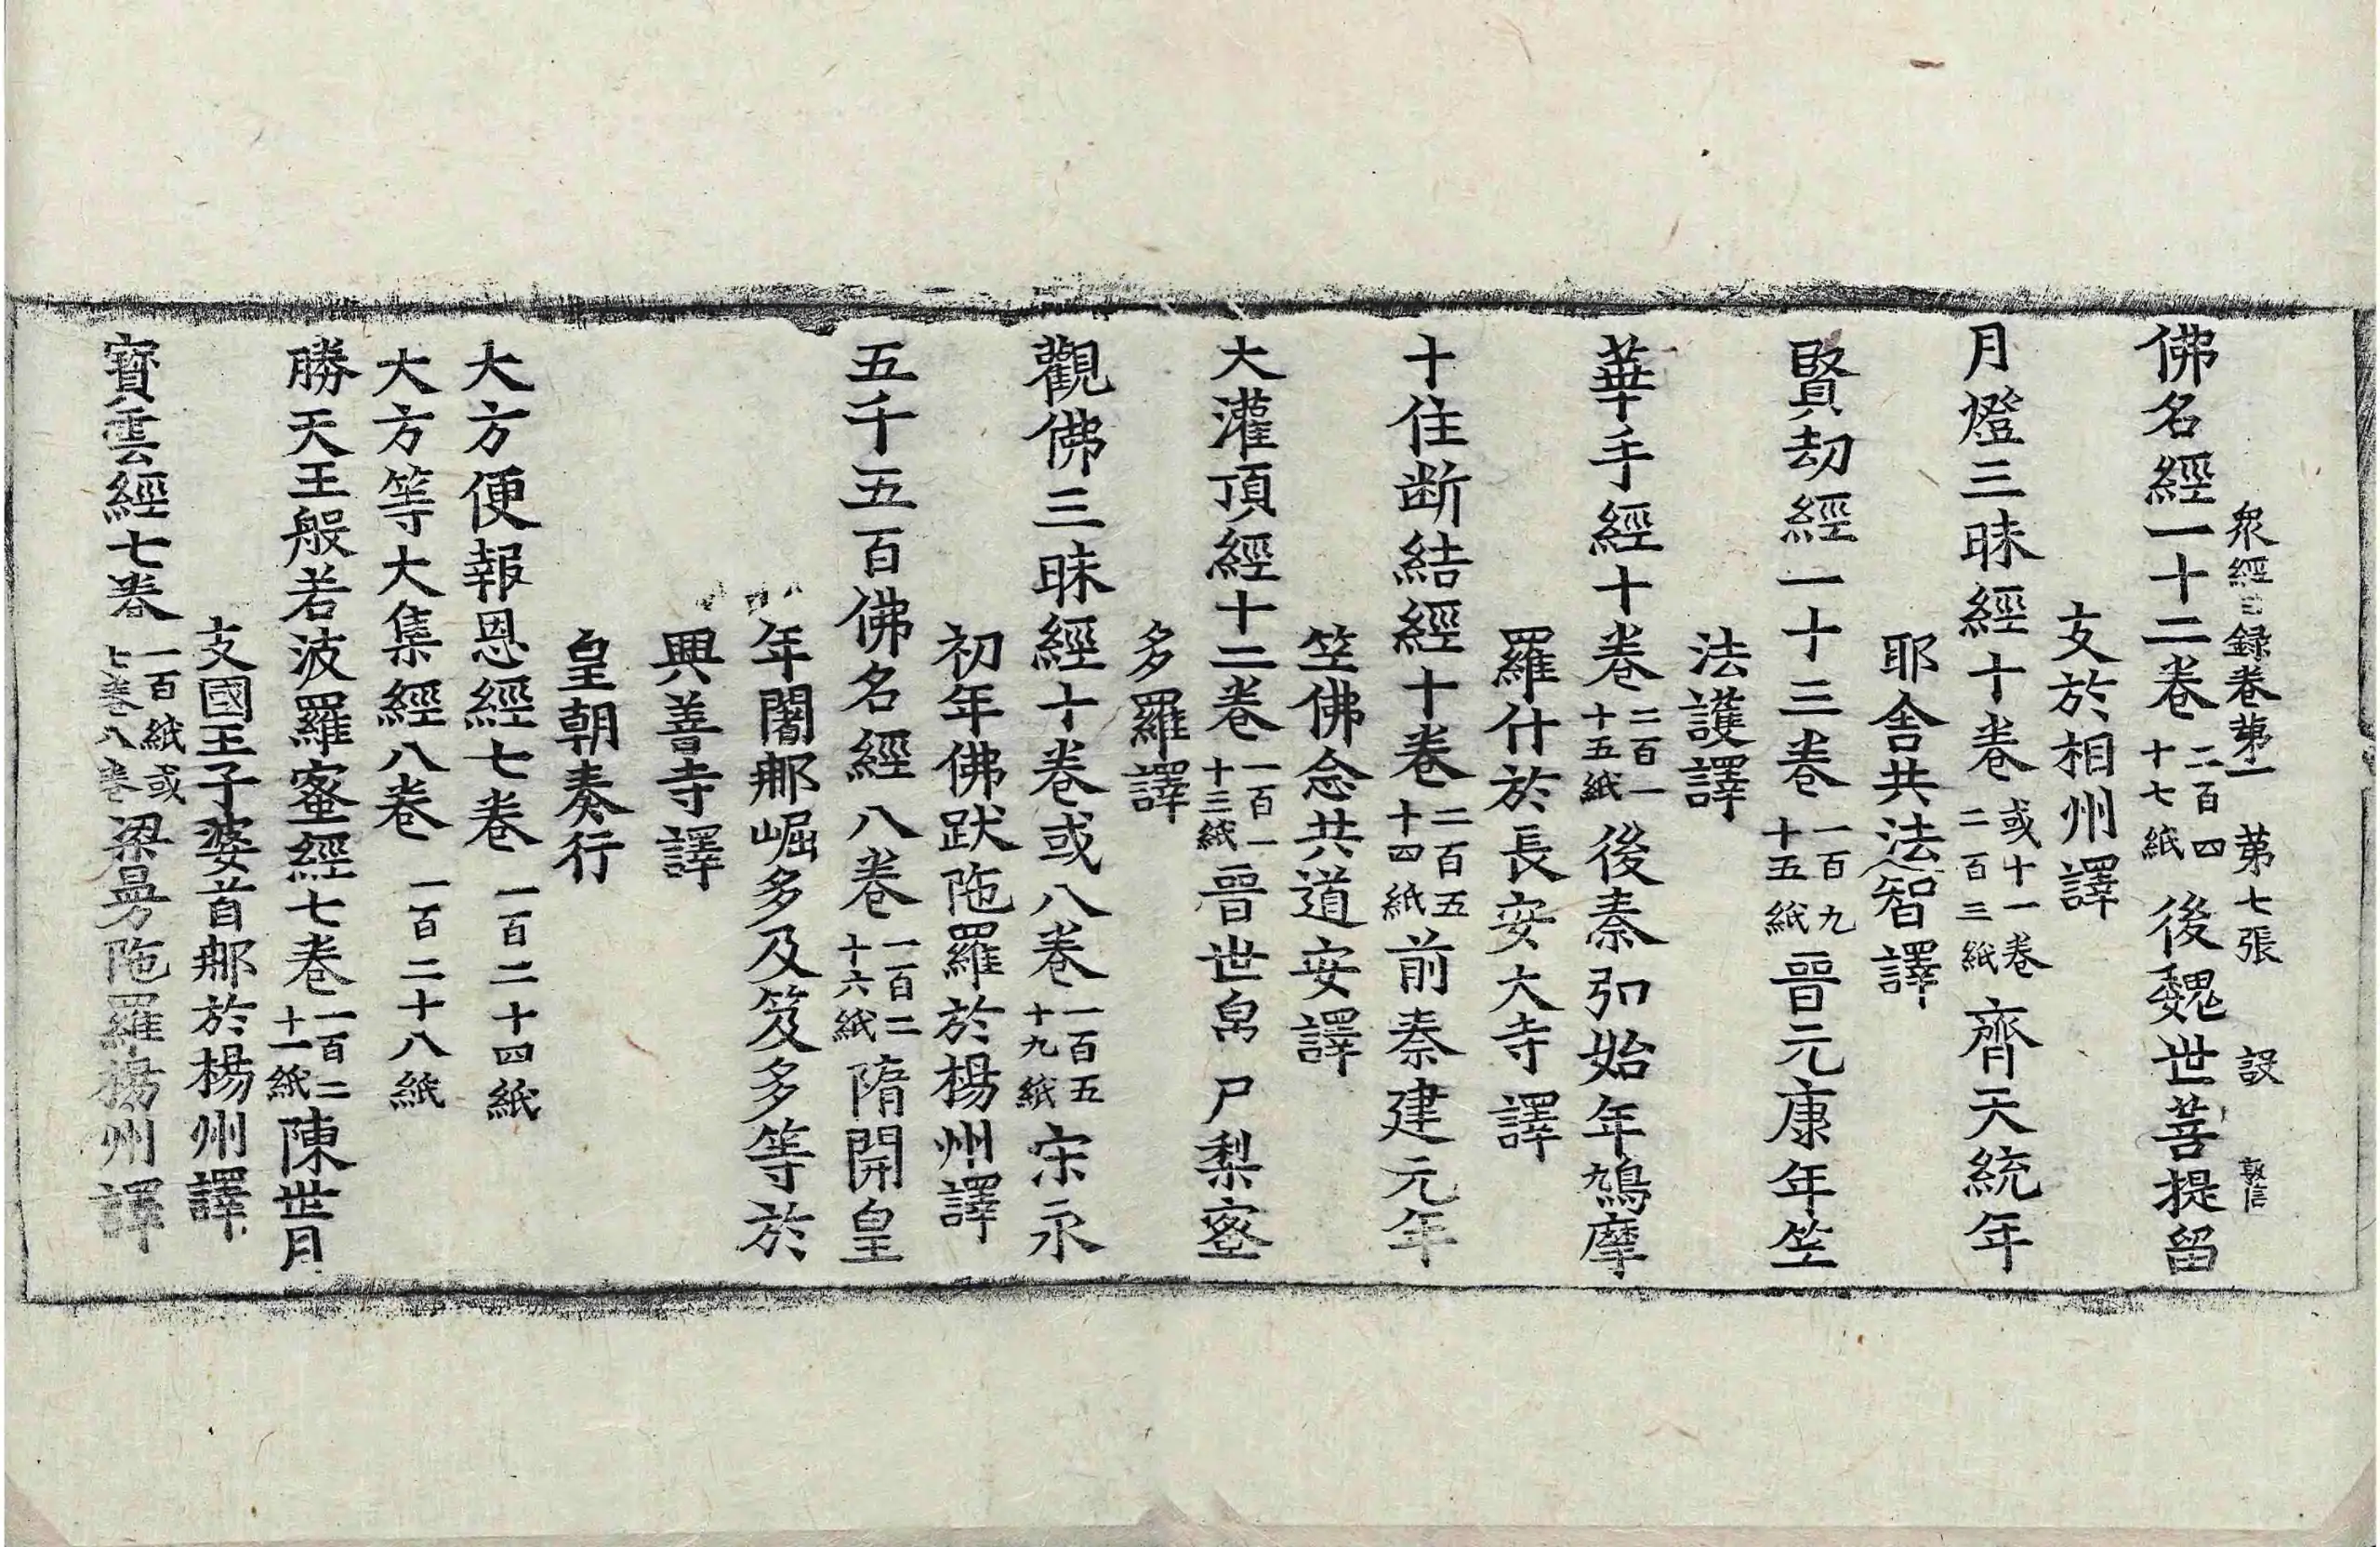 衆經目録卷第一　第七張　設　敦信
佛名經一十二卷二百四十七紙後魏世菩提留
支於相州譯
月燈三昧經十卷或十一卷二百三紙齊天統年
耶舍共法智譯
賢劫經一十三卷一百九十五紙晉元康年竺
法護譯
華手經十卷二百一十五紙後秦弘始年鳩摩
羅什於長安大寺譯
十住断結經十卷二百五十四紙前秦建元年
竺佛念共道安譯
大灌頂經十二卷一百一十三紙晉世帛尸梨蜜
多羅譯
觀佛三昧經十卷或八卷一百五十九紙宋永
初年佛跋陁羅於楊州譯
五千五百佛名經八卷一百二十六紙隋開皇
年闍那崛多及笈多等於
興善寺譯
皇朝奏行
大方便報恩經七卷一百二十四紙
大方等大集經八卷一百二十八紙
勝天王般若波羅蜜經七卷一百二十一紙陳世月
支國王子婆首那於楊州譯
寶雲經七卷一百紙或七卷八卷梁曼陁羅楊州譯